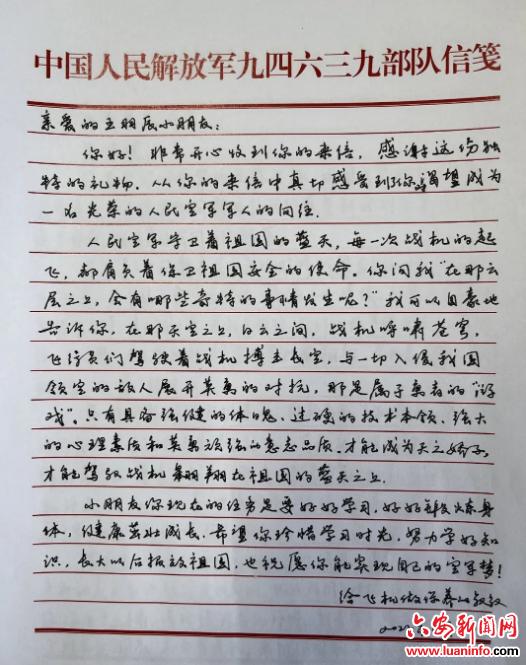 中国人民解放军九四六三九部队信笺
亲爱的王明辰小朋友：
你好！非常开心收到你的来信，感谢这份独
特的礼物。从你的来信中真切感受到了你渴望成为
一名光荣的人民空军军人的向往。
人民空军守卫着祖国的蓝天，每一次战机的起
飞，都肩负着保卫祖国安全的使命。你问我“在那云
层之上，会有哪些奇特的事情发生呢？”我可以自豪地
告诉你，在那天空之上，白云之间，战机呼啸苍穹，
飞行员们驾驶着战机搏击长空，与一切入侵我国
领空的敌人展开英勇的对抗，那是属于勇者的“游
戏”。只有具备强健的体魄、过硬的技术本领、强大
的心理素质和英勇顽强的意志品质，才能成为天之骄子，
才能驾驭战机翱翔在祖国的蓝天之上。
小朋友你现在的任务是要好好学习，好好锻炼身
体，健康茁壮成长。希望你珍惜学习时光，努力学好知
识，长大以后报效祖国，也祝愿你能实现自己的空军梦！
给飞机做保养的叔叔
六安新闻网
www.luaninfo.com